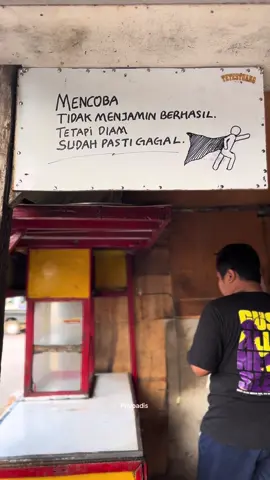 MENCOBA
TIDAK MENJAMIN BERHASIL.
TETAPI DIAM
SUDAH PASTI GAGAL.